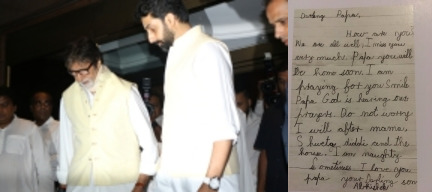 Darling Papa,
How are you
We are all well, I miss you
very much. Papa you will
be home soon. I am
praying for your Smile
Papa God is having our
prayers. Do not worry
I will after mama.
Shweta didi and the
house. I am naughty
Sometimes. I love you
papa your Darling son
Abhishek